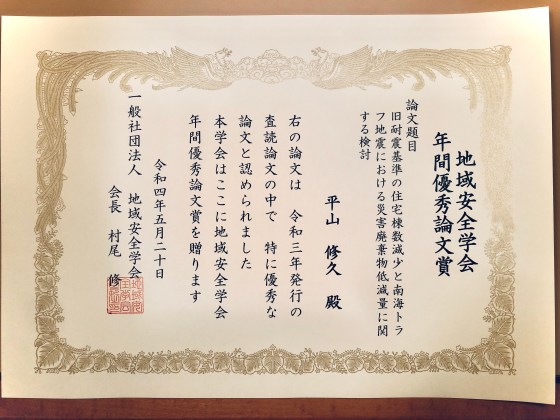 地域安全学会
年間優秀論文賞
論文題目
旧耐震基準の住宅棟数減少と南海トラ
フ地震における災害廃棄物低減量に関
する検討
平山 修久 殿
右の論文は 令和三年発行の
査読論文の中で 特に優秀な
論文と認められました
本学会はここに地域安全学会
年間優秀論文賞を贈ります
令和四年五月二十日
一般社団法人 地域安全学会
会長 村尾 修